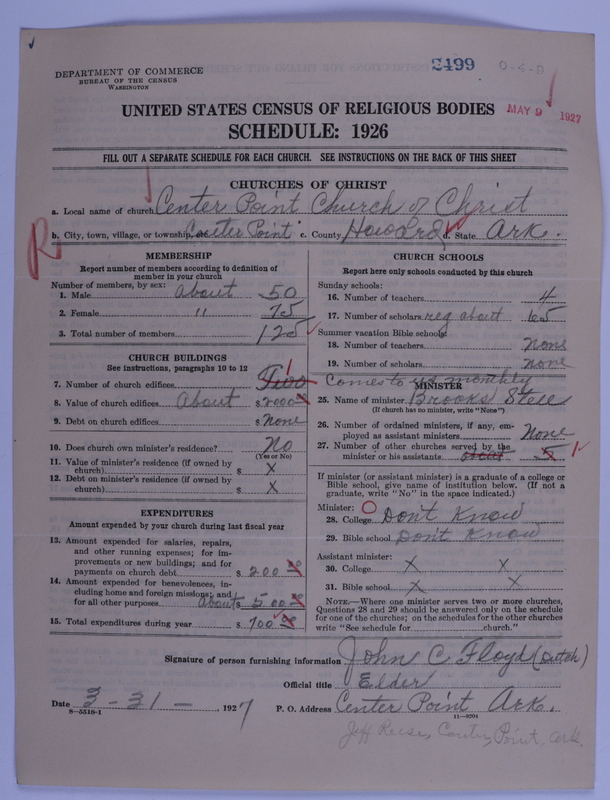 2499 O-S-D
DEPARTMENT OF COMMERCE
BUREAU OF THE CENSUS
WASHINGTON
MAY 9 1927
UNITED STATES CENSUS OF RELIGIOUS BODIES
SCHEDULE: 1926
FILL OUT A SEPARATE SCHEDULE FOR EACH CHURCH. SEE INSTRUCTIONS ON THE BACK OF THIS SHEET
CHURCHES OF CHRIST
a. Local name of church Center Point Church of Christ
R
b. City, town, village, or township, Center Point c. County Howard d. State Ark.
MEMBERSHIP
Report number of members according to definition of
member in your church
Number of members, by sex:
1. Male about 50
2. Female " 75
3. Total number of members 125
CHURCH BUILDINGS
See instructions, paragraphs 10 to 12
7. Number of church edifices Two 1
8. Value of church edifices About $ 2000
9. Debt on church edifices $ None
10. Does church own minister's residence? No
(Yes or No)
11. Value of minister's residence (if owned by
church) $ X
12. Debt on minister's residence (if owned by
church) $ X
EXPENDITURES
Amount expended by your church during last fiscal year
13. Amount expended for salaries, repairs,
and other running expenses; for im-
provements or new buildings; and for
payments on church debt $ 200
14. Amount expended for benevolences, in-
cluding home and foreign missions; and
for all other purposes about $ 500
15. Total expenditures during year $ 700
CHURCH SCHOOLS
Report here only schools conducted by this church
Sunday schools:
16. Number of teachers 4
17. Number of scholars reg about 65
Summer vacation Bible schools:
18. Number of teachers None
19. Number of scholars none
Comes to us monthly
MINISTER
25. Name of minister Brooks Stell
(If church has no minister, write "None")
26. Number of ordained ministers, if any, em-
ployed as assistant ministers None
27. Number of other churches served by the
minister or his assistants 5 1
If minister (or assistant minister) is a graduate of a college or
Bible school, give name of institution below. (If not a
graduate, write "No" in the space indicated.)
Minister: O
28. College Don't Know
29. Bible school Don't Know
Assistant minister:
30. College X X
31. Bible school X X
NOTE.—Where one minister serves two or more churches,
Questions 28 and 29 should be answered only on the schedule
for one of the churches; on the schedules for the other churches
write "See schedule for church."
Signature of person furnishing information John C Floyd (Dutch)
Official title Elder
Date 3-31-, 1927 P. O. Address Center Point Ark.
8-5518-1 11-9204
Jeff Reese, Center Point, Ark.